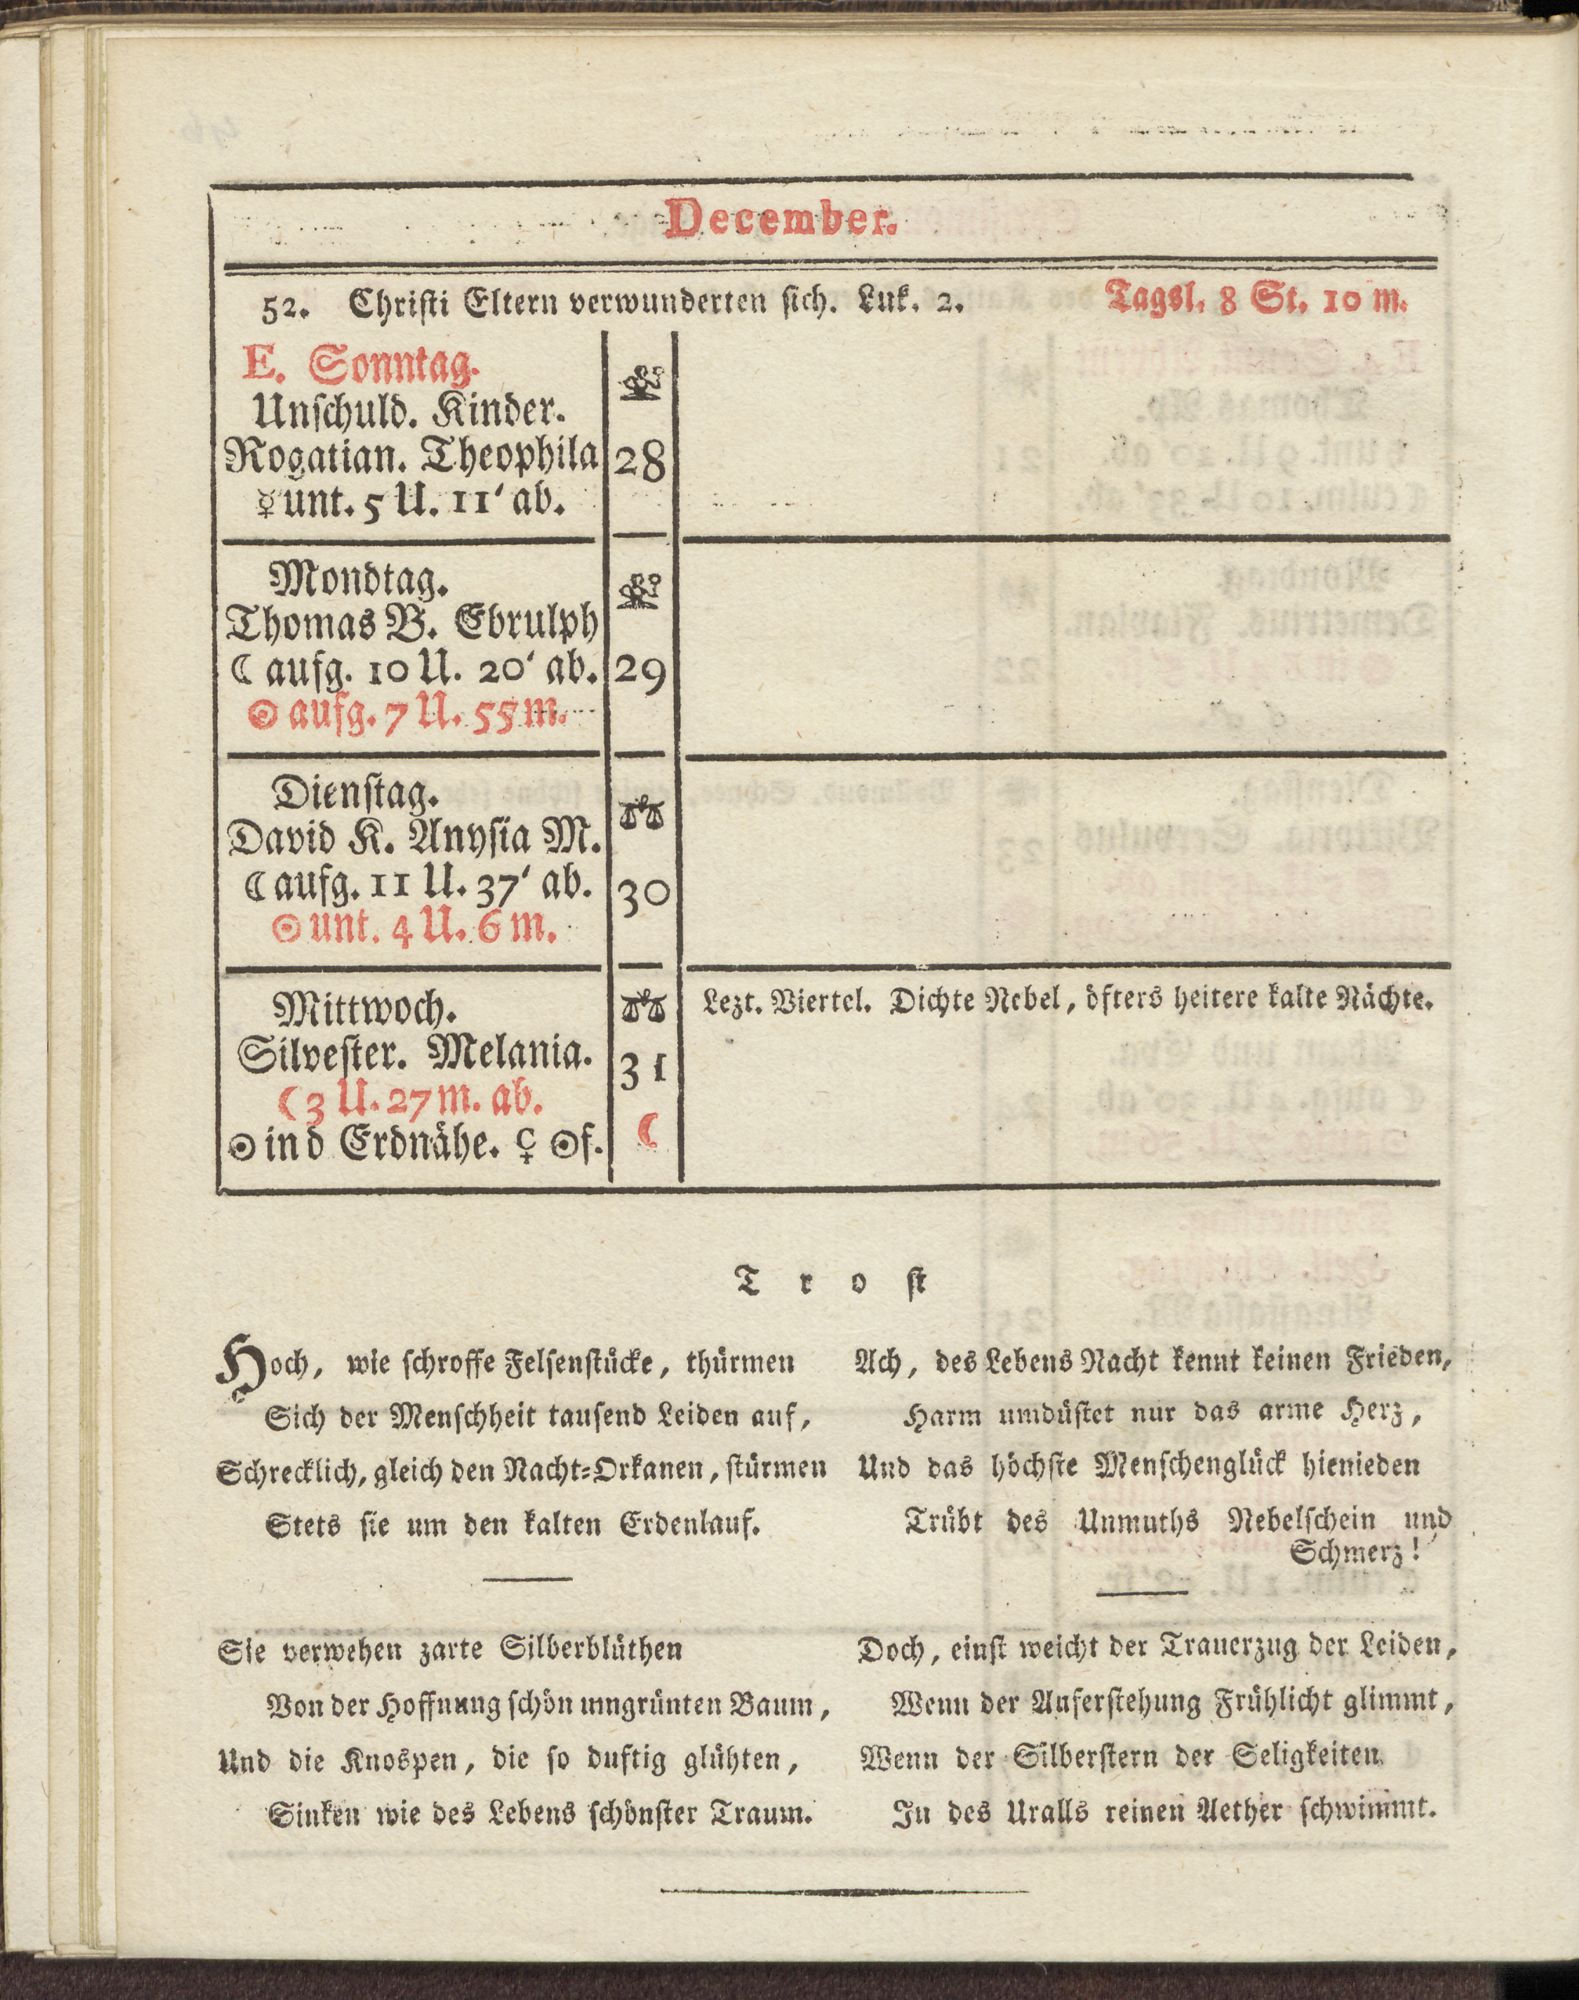 December.
52. Christi Eltern verwunderten sich. Luk. 2. Tagsl. 8 St. 10 m.
E. Sonntag.
Unschuld. Kinder.
Rogatian. Theophila 28
☿ unt. 5 U. 11′ ab.
Mondtag.
Thomas B. Ebrulph
☾ aufg. 10 U. 20′ ab. 29
☉ aufg. 7 U. 55 m.
Dienstag.
David K. Anysia M.
☾ aufg. 11 U. 37′ ab. 30
☉ unt. 4 U. 6 m.
Mittwoch. Lezt. Viertel. Dichte Nebel, öfters heitere kalte Nächte.
Silvester. Melania. 31
☾ 3 U. 27 m. ab. ☾
☉ in d Erdnähe. ♀ ☉f.
Trost
Hoch, wie schroffe Felsenstücke, thürmen
Sich der Menschheit tausend Leiden auf,
Schrecklich, gleich den Nacht-Orkanen, stürmen
Stets sie um den kalten Erdenlauf.
Sie verwehen zarte Silberblüthen
Von der Hoffnung schön umgrünten Baum,
Und die Knospen, die so duftig glühten,
Sinken wie des Lebens schönster Traum.
Ach, des Lebens Nacht kennt keinen Frieden,
Harm umdüstet nur das arme Herz,
Und das höchste Menschenglück hienieden
Trübt des Unmuths Nebelschein und
Schmerz!
Doch, einst weicht der Trauerzug der Leiden,
Wenn der Auferstehung Frühlicht glimmt,
Wenn der Silberstern der Seligkeiten
In des Uralls reinen Aether schwimmt.